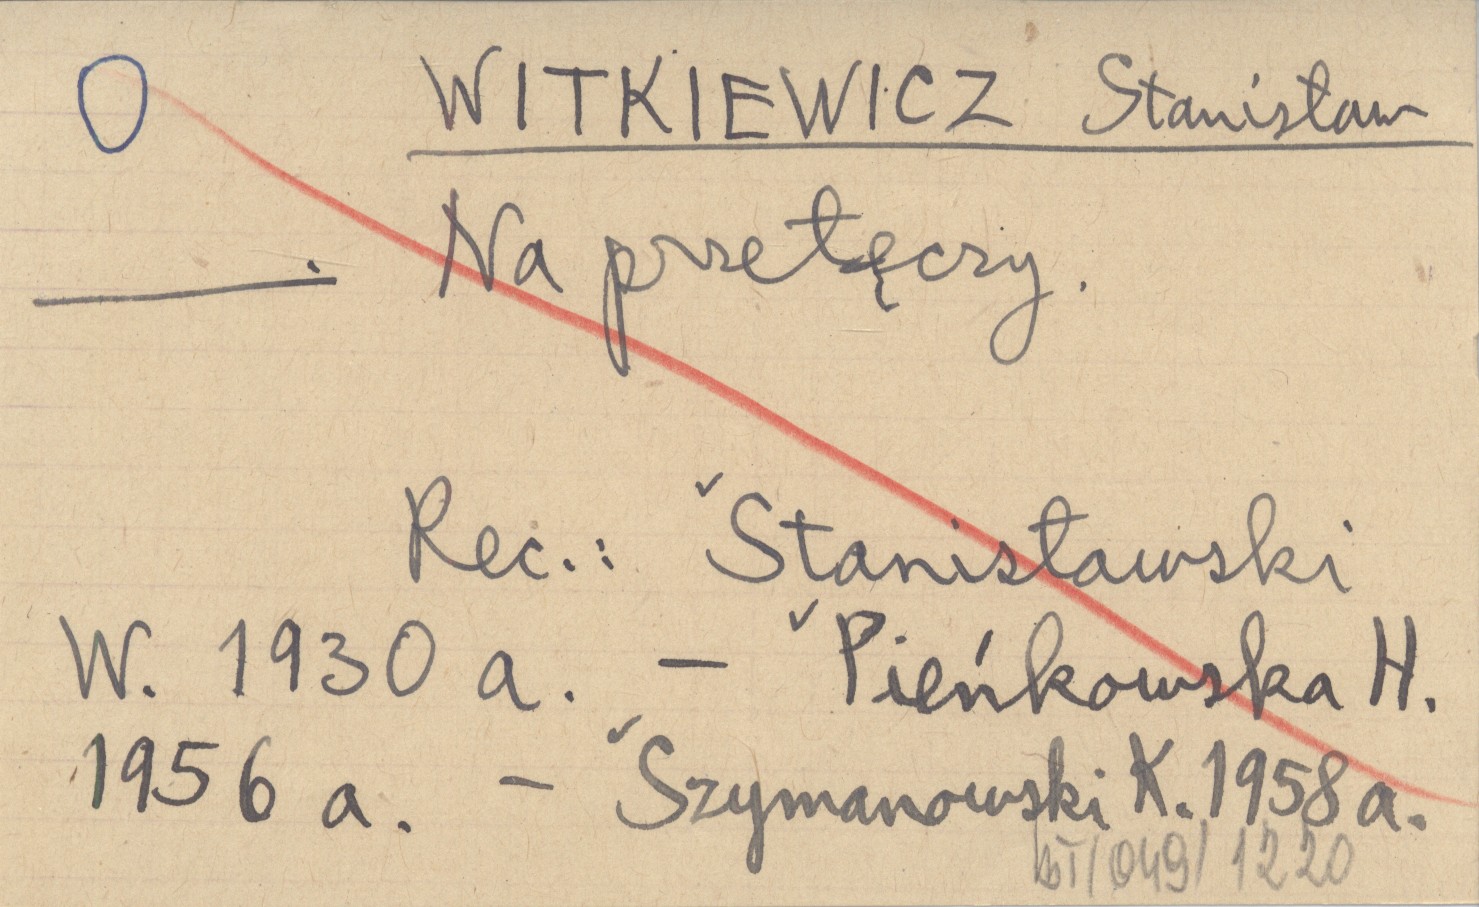 O WITKIEWICZ Stanisław
Na przełęczy.
Rec.: Stanisławski
W. 1930 a. – Pieńkowska H.
1956 a. – Szymanowski K. 1958 a.
BT/049/1220